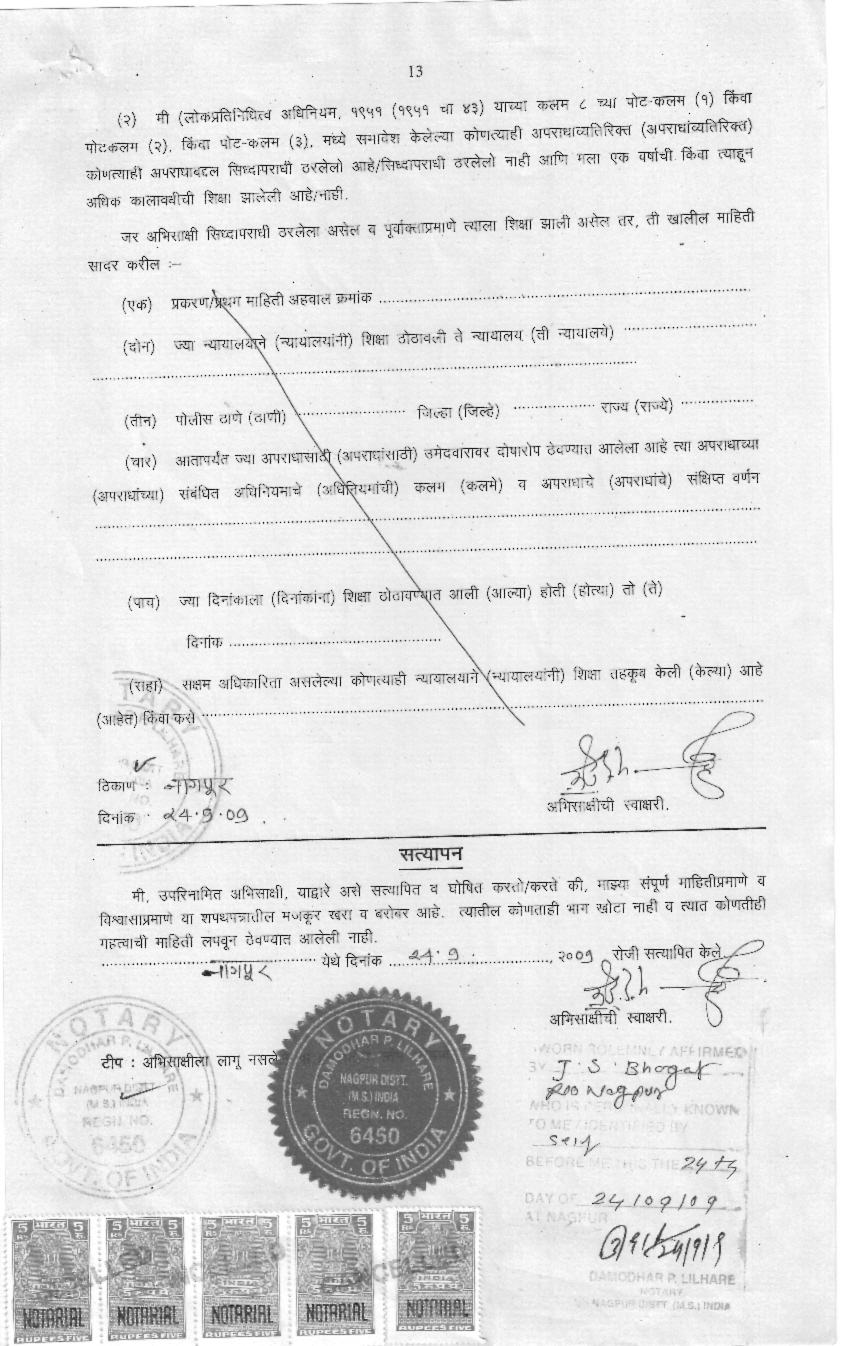 13
(२) मी (लोकप्रतिनिधित्व अधिनियम, १९५१ (१९५१ चा ४३) याच्या कलम ८ च्या पोट-कलम (१) किंवा
पोटकलम (२), किंवा पोट-कलम (३), मध्ये समावेश केलेल्या कोणत्याही अपराधाव्यतिरिक्त (अपराधांव्यतिरिक्त)
कोणत्याही अपराधाबद्दल सिध्दापराधी ठरलेलो आहे/सिध्दापराधी ठरलेलो नाही आणि मला एक वर्षाची किंवा त्याहून
अधिक कालावधीची शिक्षा झालेली आहे/नाही.
जर अभिसाक्षी सिध्दापराधी ठरलेला असेल व पूर्वोक्ताप्रमाणे त्याला शिक्षा झाली असेल तर, ती खालील माहिती
सादर करील :–
(एक) प्रकरण/प्रथम माहिती अहवाल क्रमांक
(दोन) ज्या न्यायालयाने (न्यायालयांनी) शिक्षा ठोठावली ते न्यायालय (ती न्यायालये)
(तीन) पोलीस ठाणे (ठाणी) जिल्हा (जिल्हे) राज्य (राज्ये)
(चार) आतापर्यंत ज्या अपराधासाठी (अपराधांसाठी) उमेदवारावर दोषारोप ठेवण्यात आलेला आहे त्या अपराधाच्या
(अपराधांच्या) संबंधित अधिनियमाचे (अधिनियमांची) कलम (कलमे) व अपराधाचे (अपराधांचे) संक्षिप्त वर्णन
(पाच) ज्या दिनांकाला (दिनांकांना) शिक्षा ठोठावण्यात आली (आल्या) होती (होत्या) तो (ते)
दिनांक
(सहा) सक्षम अधिकारिता असलेल्या कोणत्याही न्यायालयाने (न्यायालयांनी) शिक्षा तहकूब केली (केल्या) आहे
(आहेत) किंवा कसे
ठिकाण : नागपूर
दिनांक : २4.9.09
अभिसाक्षीची स्वाक्षरी.
सत्यापन
मी, उपरिनामित अभिसाक्षी, याद्वारे असे सत्यापित व घोषित करतो/करते की, माझ्या संपूर्ण माहितीप्रमाणे व
विश्वासाप्रमाणे या शपथपत्रातील मजकूर खरा व बरोबर आहे. त्यातील कोणताही भाग खोटा नाही व त्यात कोणतीही
महत्वाची माहिती लपवून ठेवण्यात आलेली नाही.
नागपूर येथे दिनांक २4.9. , २००9 रोजी सत्यापित केले.
अभिसाक्षीची स्वाक्षरी.
टीप : अभिसाक्षीला लागू नसले
NOTARY
DAMODHAR P. LILHARE
NAGPUR DISTT.
(M.S.) INDIA
REGN. NO.
6450
GOVT. OF INDIA
NOTARY
DAMODHAR P. LILHARE
NAGPUR DISTT.
(M.S.) INDIA
REGN. NO.
6450
GOVT. OF INDIA
SWORN SOLEMNLY AFFIRMED
BY J. S. Bhogat
R/o Nagpur
WHO IS PERSONALLY KNOWN
TO ME / IDENTIFIED BY
Self
BEFORE ME THIS THE 24th
DAY OF 24/09/09
AT NAGPUR
DAMODHAR P. LILHARE
NOTARY
NAGPUR DISTT. (M.S.) INDIA
5 भारत 5
NOTARIAL
RUPEES FIVE
5 भारत 5
NOTARIAL
RUPEES FIVE
5 भारत 5
NOTARIAL
RUPEES FIVE
5 भारत 5
NOTARIAL
RUPEES FIVE
5 भारत 5
NOTARIAL
RUPEES FIVE
CANCELLED